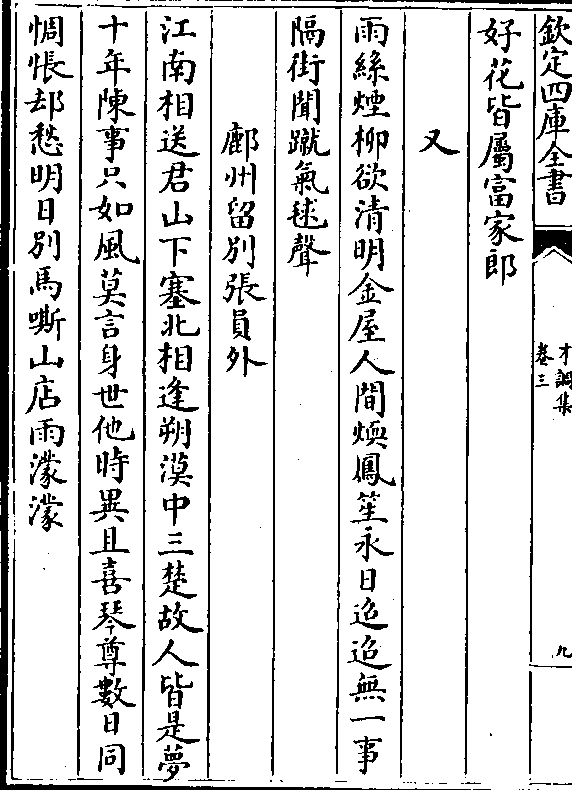 欽定四庫全書
才調集
卷三
九
好花皆屬富家郎
又
雨絲煙柳欲清明金屋人間煥鳳笙永日迢迢無一事
隔街聞蹴氣毬聲
鄜州留別張員外
江南相送君山下塞北相逢朔漠中三楚故人皆是夢
十年陳事只如風莫言身世他時異且喜琴尊數日同
惆悵却愁明日別馬嘶山店雨濛濛